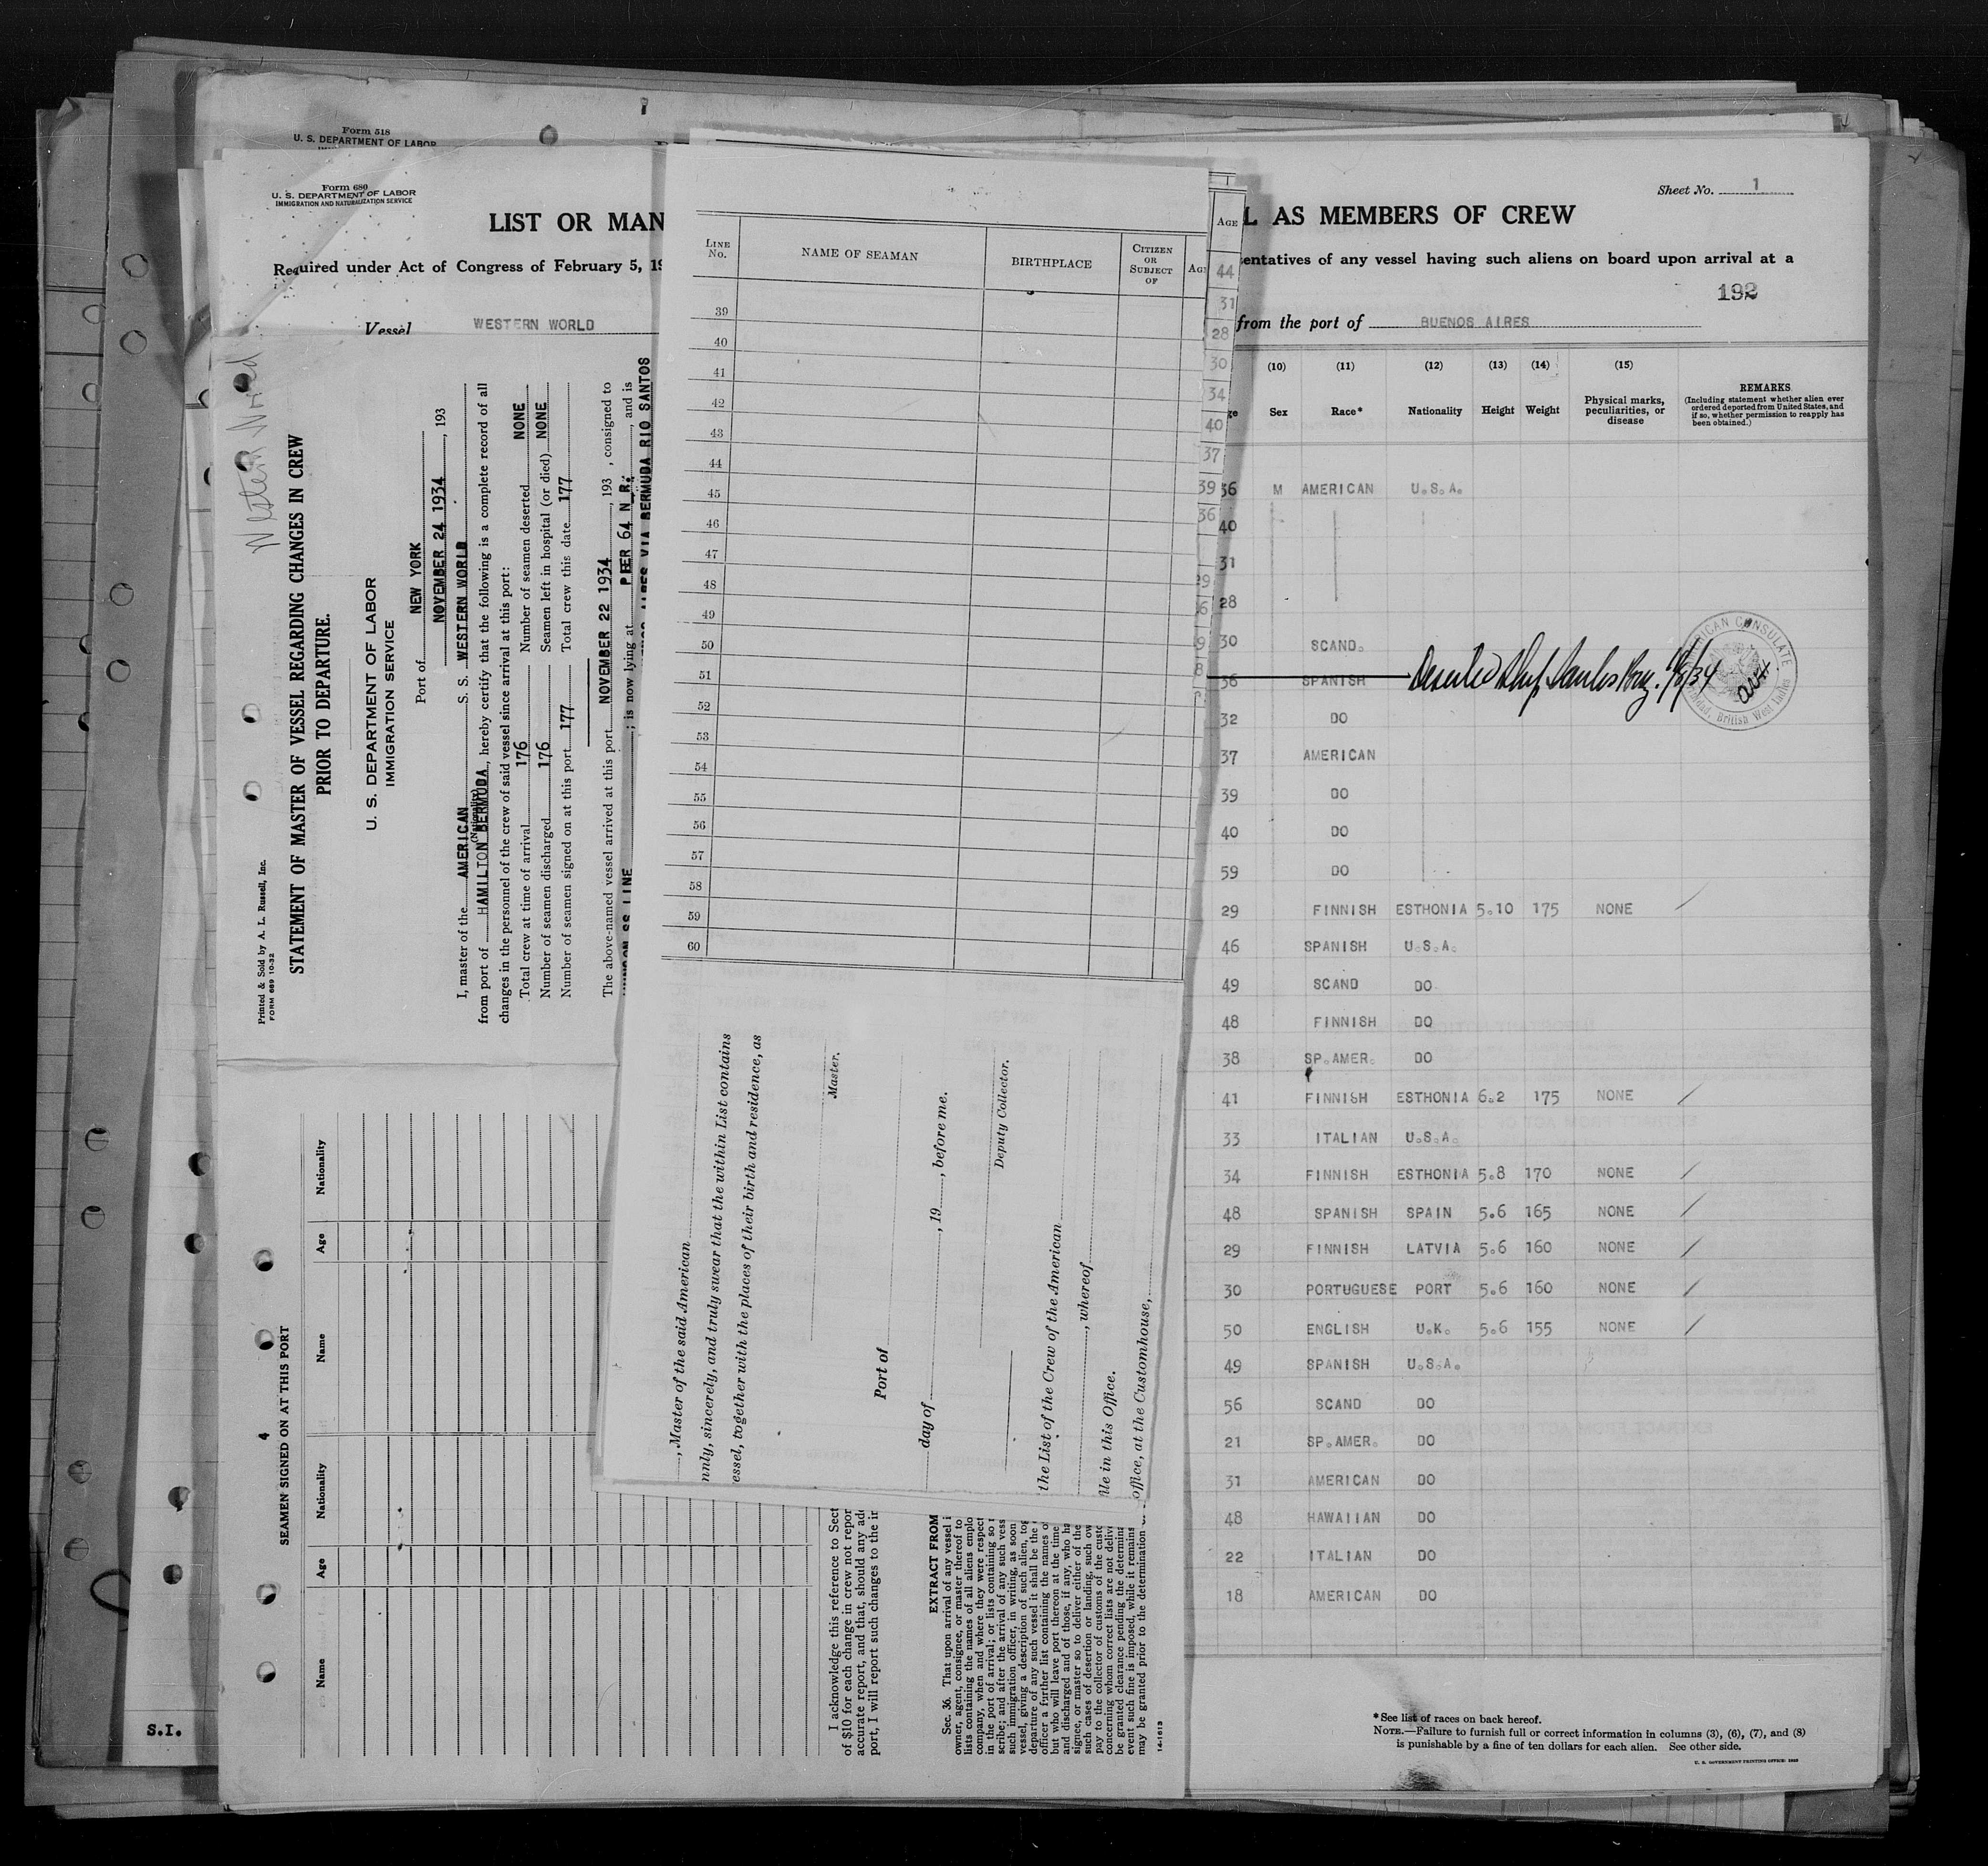 Form 518
U. S. DEPARTMENT OF LABOR
Form 680
U. S. DEPARTMENT OF LABOR
IMMIGRATION AND NATURALIZATION SERVICE
LIST OR MAN
Required under Act of Congress of February 5, 19
Vessel WESTERN WORLD
Western World
Printed & Sold by A. L. Russell, Inc.
FORM 689 10-32
STATEMENT OF MASTER OF VESSEL REGARDING CHANGES IN CREW
PRIOR TO DEPARTURE.
U. S. DEPARTMENT OF LABOR
IMMIGRATION SERVICE
Port of NEW YORK
NOVEMBER 24 1934, 193
I, master of the AMERICAN S. S. WESTERN WORLD
(Nationality)
from port of HAMILTON BERMUDA, hereby certify that the following is a complete record of all
changes in the personnel of the crew of said vessel since arrival at this port:
Total crew at time of arrival 176 Number of seamen deserted NONE
Number of seamen discharged 176 Seamen left in hospital (or died) NONE
Number of seamen signed on at this port 177 Total crew this date 177
The above-named vessel arrived at this port NOVEMBER 22 1934, 193 , consigned to
SS LINE ; is now lying at PIER 64 N R., and is
VIA BERMUDA RIO SANTOS
4
SEAMEN SIGNED ON AT THIS PORT
Name Age Nationality Name Age Nationality
I acknowledge this reference to Sect
of $10 for each change in crew not repor
accurate report, and that, should any add
port, I will report such changes to the in
EXTRACT FROM
Sec. 36. That upon arrival of any vessel i
owner, agent, consignee, or master thereof to
lists containing the names of all aliens emplo
company, when and where they were respect
in the port of arrival; or lists containing so
scribe; and after the arrival of any such vess
such immigration officer, in writing, as soon
vessel, giving a description of such alien, tog
departure of any such vessel it shall be the
officer a further list containing the names o
but who will leave port thereon at the time
and discharged and of those, if any, who ha
signee, or master so to deliver either of the
such cases of desertion or landing, such ow
pay to the collector of customs of the custo
concerning whom correct lists are not delive
be granted clearance pending the determina
event such fine is imposed, while it remains
may be granted prior to the determination
14-1613
S.I.
LINE No. NAME OF SEAMAN BIRTHPLACE CITIZEN OR SUBJECT OF AGE
39
40
41
42
43
44
45
46
47
48
49
50
51
52
53
54
55
56
57
58
59
60
, Master of the said American
nnly, sincerely, and truly swear that the within List contains
essel, together with the places of their birth and residence, as
Master.
Port of
day of , 19 , before me.
Deputy Collector.
the List of the Crew of the American
, whereof
ile in this Office.
office, at the Customhouse,
AGE
44
31
28
30
34
40
37
39
36
Sheet No. 1
L AS MEMBERS OF CREW
entatives of any vessel having such aliens on board upon arrival at a
192
from the port of BUENOS AIRES
(10) (11) (12) (13) (14) (15)
Sex Race* Nationality Height Weight Physical marks, peculiarities, or disease
REMARKS
(Including statement whether alien ever ordered deported from United States, and if so, whether permission to reapply has been obtained.)
36 M AMERICAN U.S.A.
40
31
28
30 SCAND.
36 SPANISH Deserted Ship Santos 11/8/34
AMERICAN CONSULATE
Trinidad, British West Indies
32 DO
37 AMERICAN
39 DO
40 DO
59 DO
29 FINNISH ESTHONIA 5.10 175 NONE /
46 SPANISH U.S.A.
49 SCAND DO
48 FINNISH DO
38 SP.AMER. DO
41 FINNISH ESTHONIA 6.2 175 NONE /
33 ITALIAN U.S.A.
34 FINNISH ESTHONIA 5.8 170 NONE /
48 SPANISH SPAIN 5.6 165 NONE /
29 FINNISH LATVIA 5.6 160 NONE /
30 PORTUGUESE PORT 5.6 160 NONE /
50 ENGLISH U.K. 5.6 155 NONE /
49 SPANISH U.S.A.
56 SCAND DO
21 SP.AMER. DO
31 AMERICAN DO
48 HAWAIIAN DO
22 ITALIAN DO
18 AMERICAN DO
*See list of races on back hereof.
NOTE.—Failure to furnish full or correct information in columns (3), (6), (7), and (8)
is punishable by a fine of ten dollars for each alien. See other side.